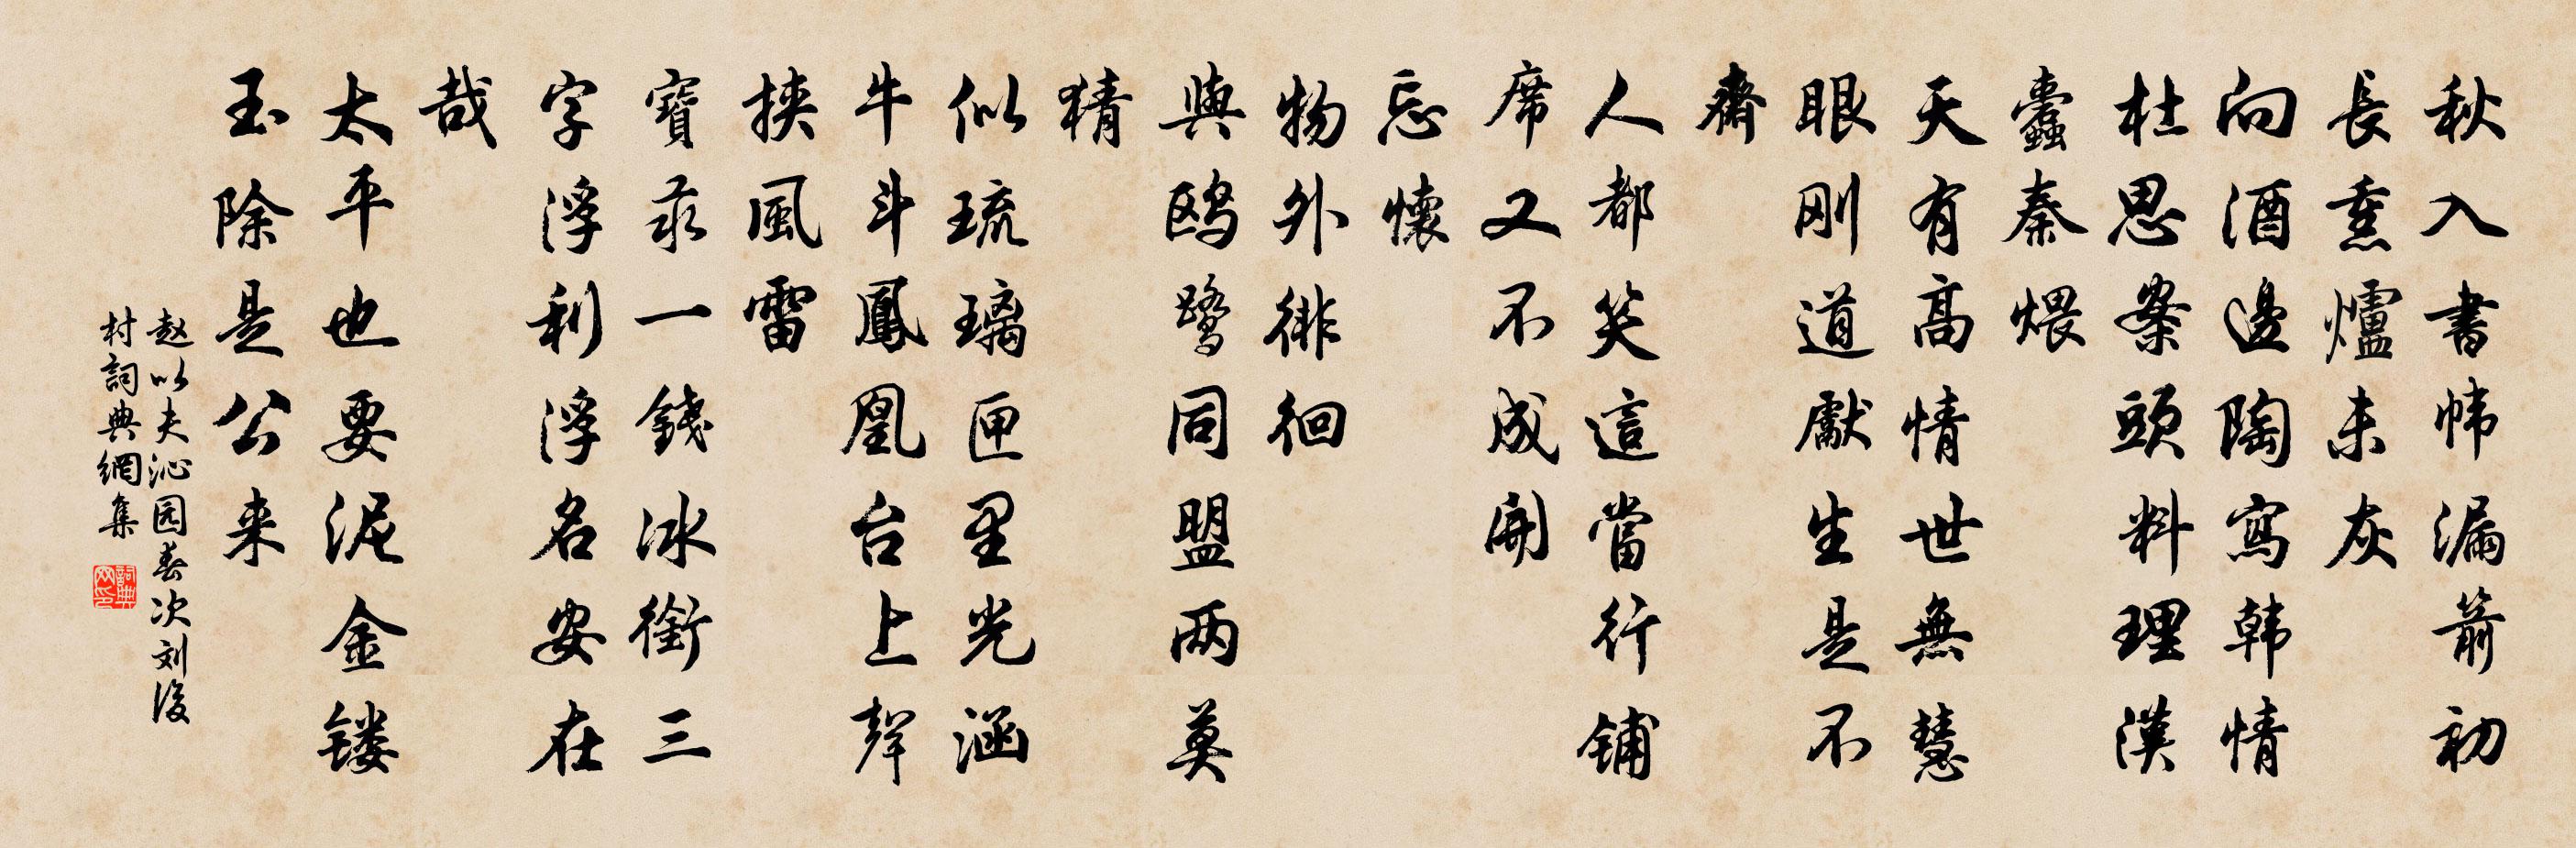 秋入書幃漏箭初
長熏爐未灰
向酒邊陶寫韩情
杜思案頭料理漢
蠹秦煨
天有高情世無慧
眼刚道獻生是不
齋
人都笑這當行铺
席又不成開
忘懷
物外徘徊
與鸥鹭同盟两莫
猜
似琉璃匣里光涵
牛斗鳳凰台上聲
挟風雷
寶汞一錢冰銜三
字浮利浮名安在
哉
太平也要泥金镂
玉除是公来
赵以夫沁园春次刘後
村詞典網集
詞典网印